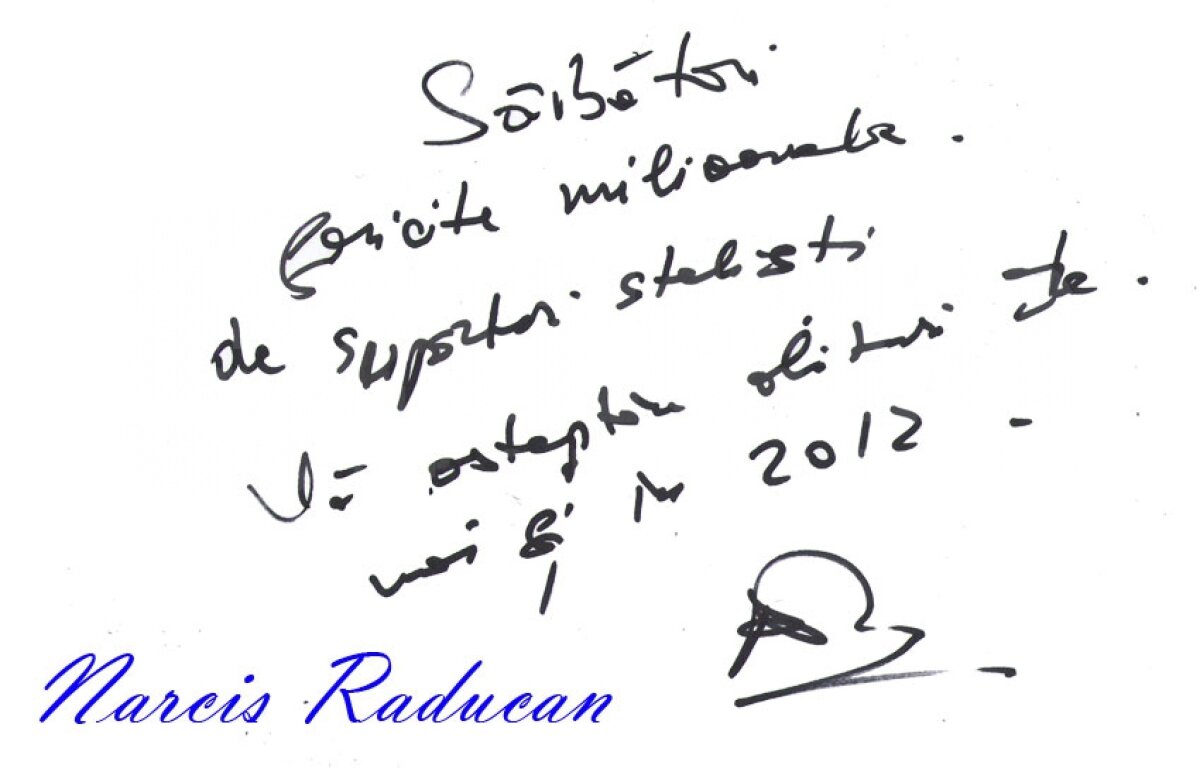 Sărbători
fericite milioanele.
de suportori steliști
Vă așteptăm alături de.
noi și în 2012 -
Narcis Raducan